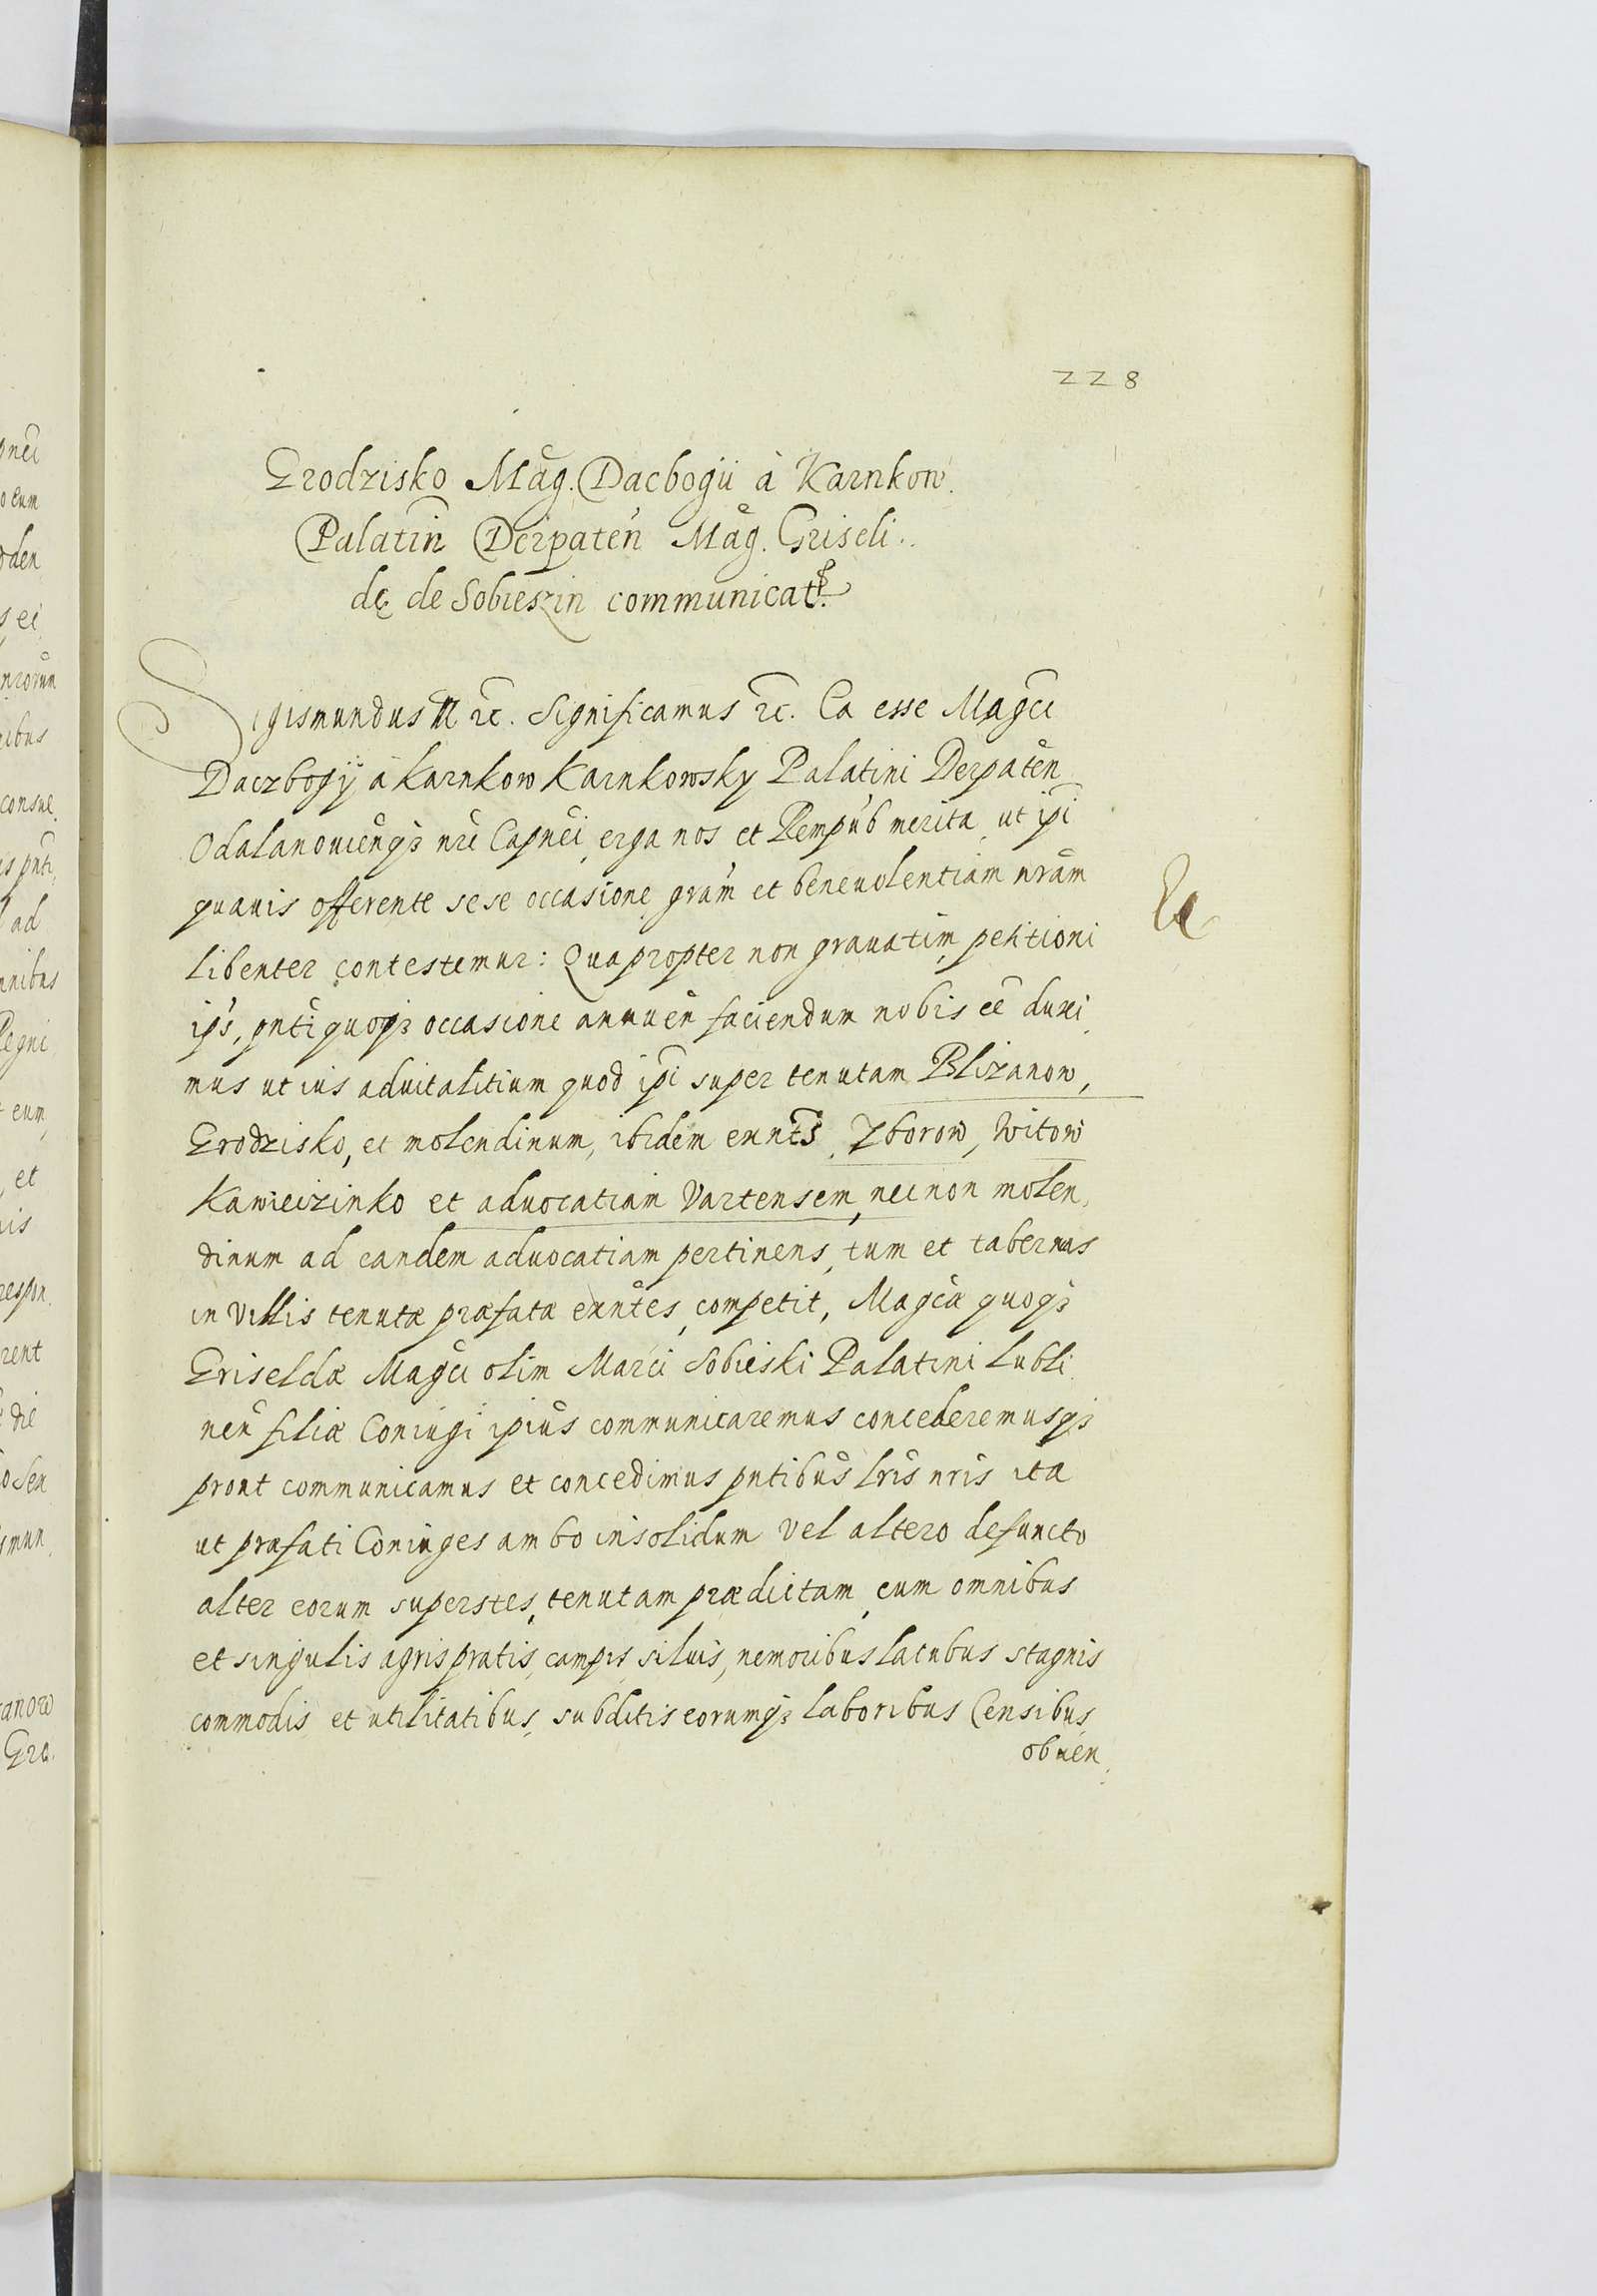 228
Grodzisko Mag. Dacbogii à Karnkow.
Palatin Derpaten Mag. Griseli..
dę de Sobieszin communicat.
Sigismundus III rc. Significamus rc. Ea esse Magci
Daczbogÿ a Karnkow Karnkowsky Palatini Derpaten
Odalanouieng nri Capnei, erga nos et Rempub merita, ut ipi
quauis offerente sese occasione gram et beneuolentiam nram
libenter contestemur: Quapropter non grauatim, petitioni
ips, pnti quoqȝ occasione annuen faciendum nobis ee duxi,
mus ut ius aduitalitium quod ipi super tenutam Blizanow,
Grodzisko, et molendinum, ibidem exnts, Zborow, Witow
Kawieczinko et aduocatiam Vartensem, necnon molen,
dinum ad eandem aduocatiam pertinens, tum et tabernas
in Villis tenutæ præfatæ exntes, competit, Magcæ quoqȝ
Griseldæ Magci olim Marci Sobieski Palatini Lubli
nen filiæ Coniugi ipius communicaremus concederemusqȝ
prout communicamus et concedimus pntibus lris nris ita
ut præfati Coniuges ambo insolidum vel altero defuncto
alter eorum superstes, tenutam prædictam, cum omnibus
et singulis agris pratis, campis siluis, nemoribus lacubus stagnis
commodis et utilitatibus, subditis eorumqȝ laboribus Censibus
obuen